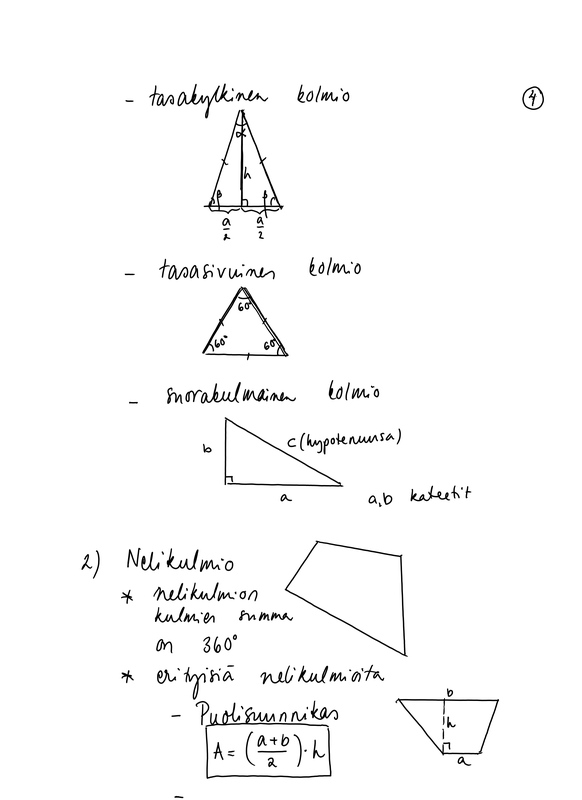 - tasakylkinen kolmio
④
α
h
β β
a/2 a/2
- tasasivuinen kolmio
60°
60° 60°
- suorakulmainen kolmio
b
c (hypotenuusa)
a
a,b kateetit
2) Nelikulmio
* nelikulmion
kulmien summa
on 360°
* erityisiä nelikulmioita
- Puolisuunnikas
b
h
a
A = (a+b/2)·h